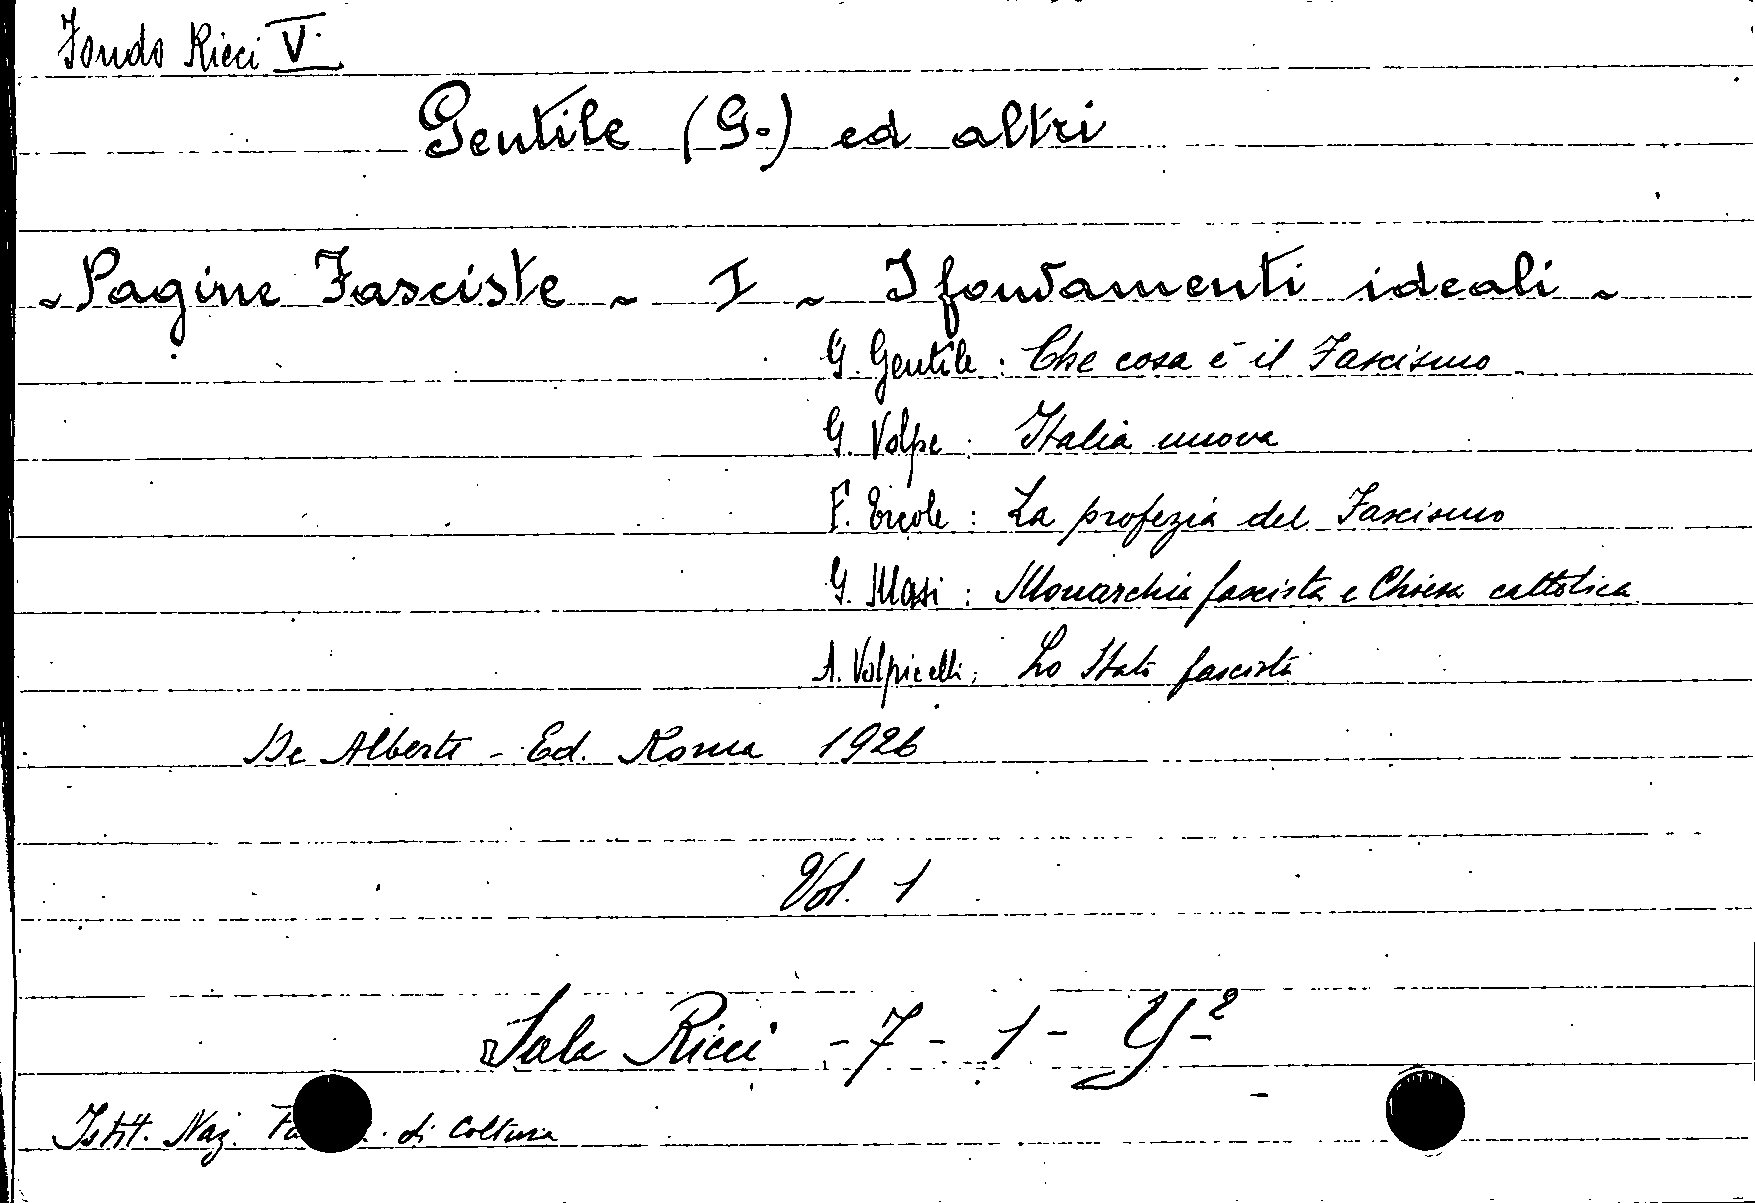 Fondo Ricci V.
Gentile (G.) ed altri
- Pagine Fasciste - I - I fondamenti ideali -
G. Gentile : Che cosa è il Fascismo
G. Volpe : Italia nuova
F. Ercole : La profezia del Fascismo
G. Masi : Monarchia fascista e Chiesa cattolica
A. Volpicelli : Lo Stato fascista
De Alberti - Ed. Roma 1926
Vol. 1
Sala Ricci - 7 - 1 - Y²
Istit. Naz. di Coltura